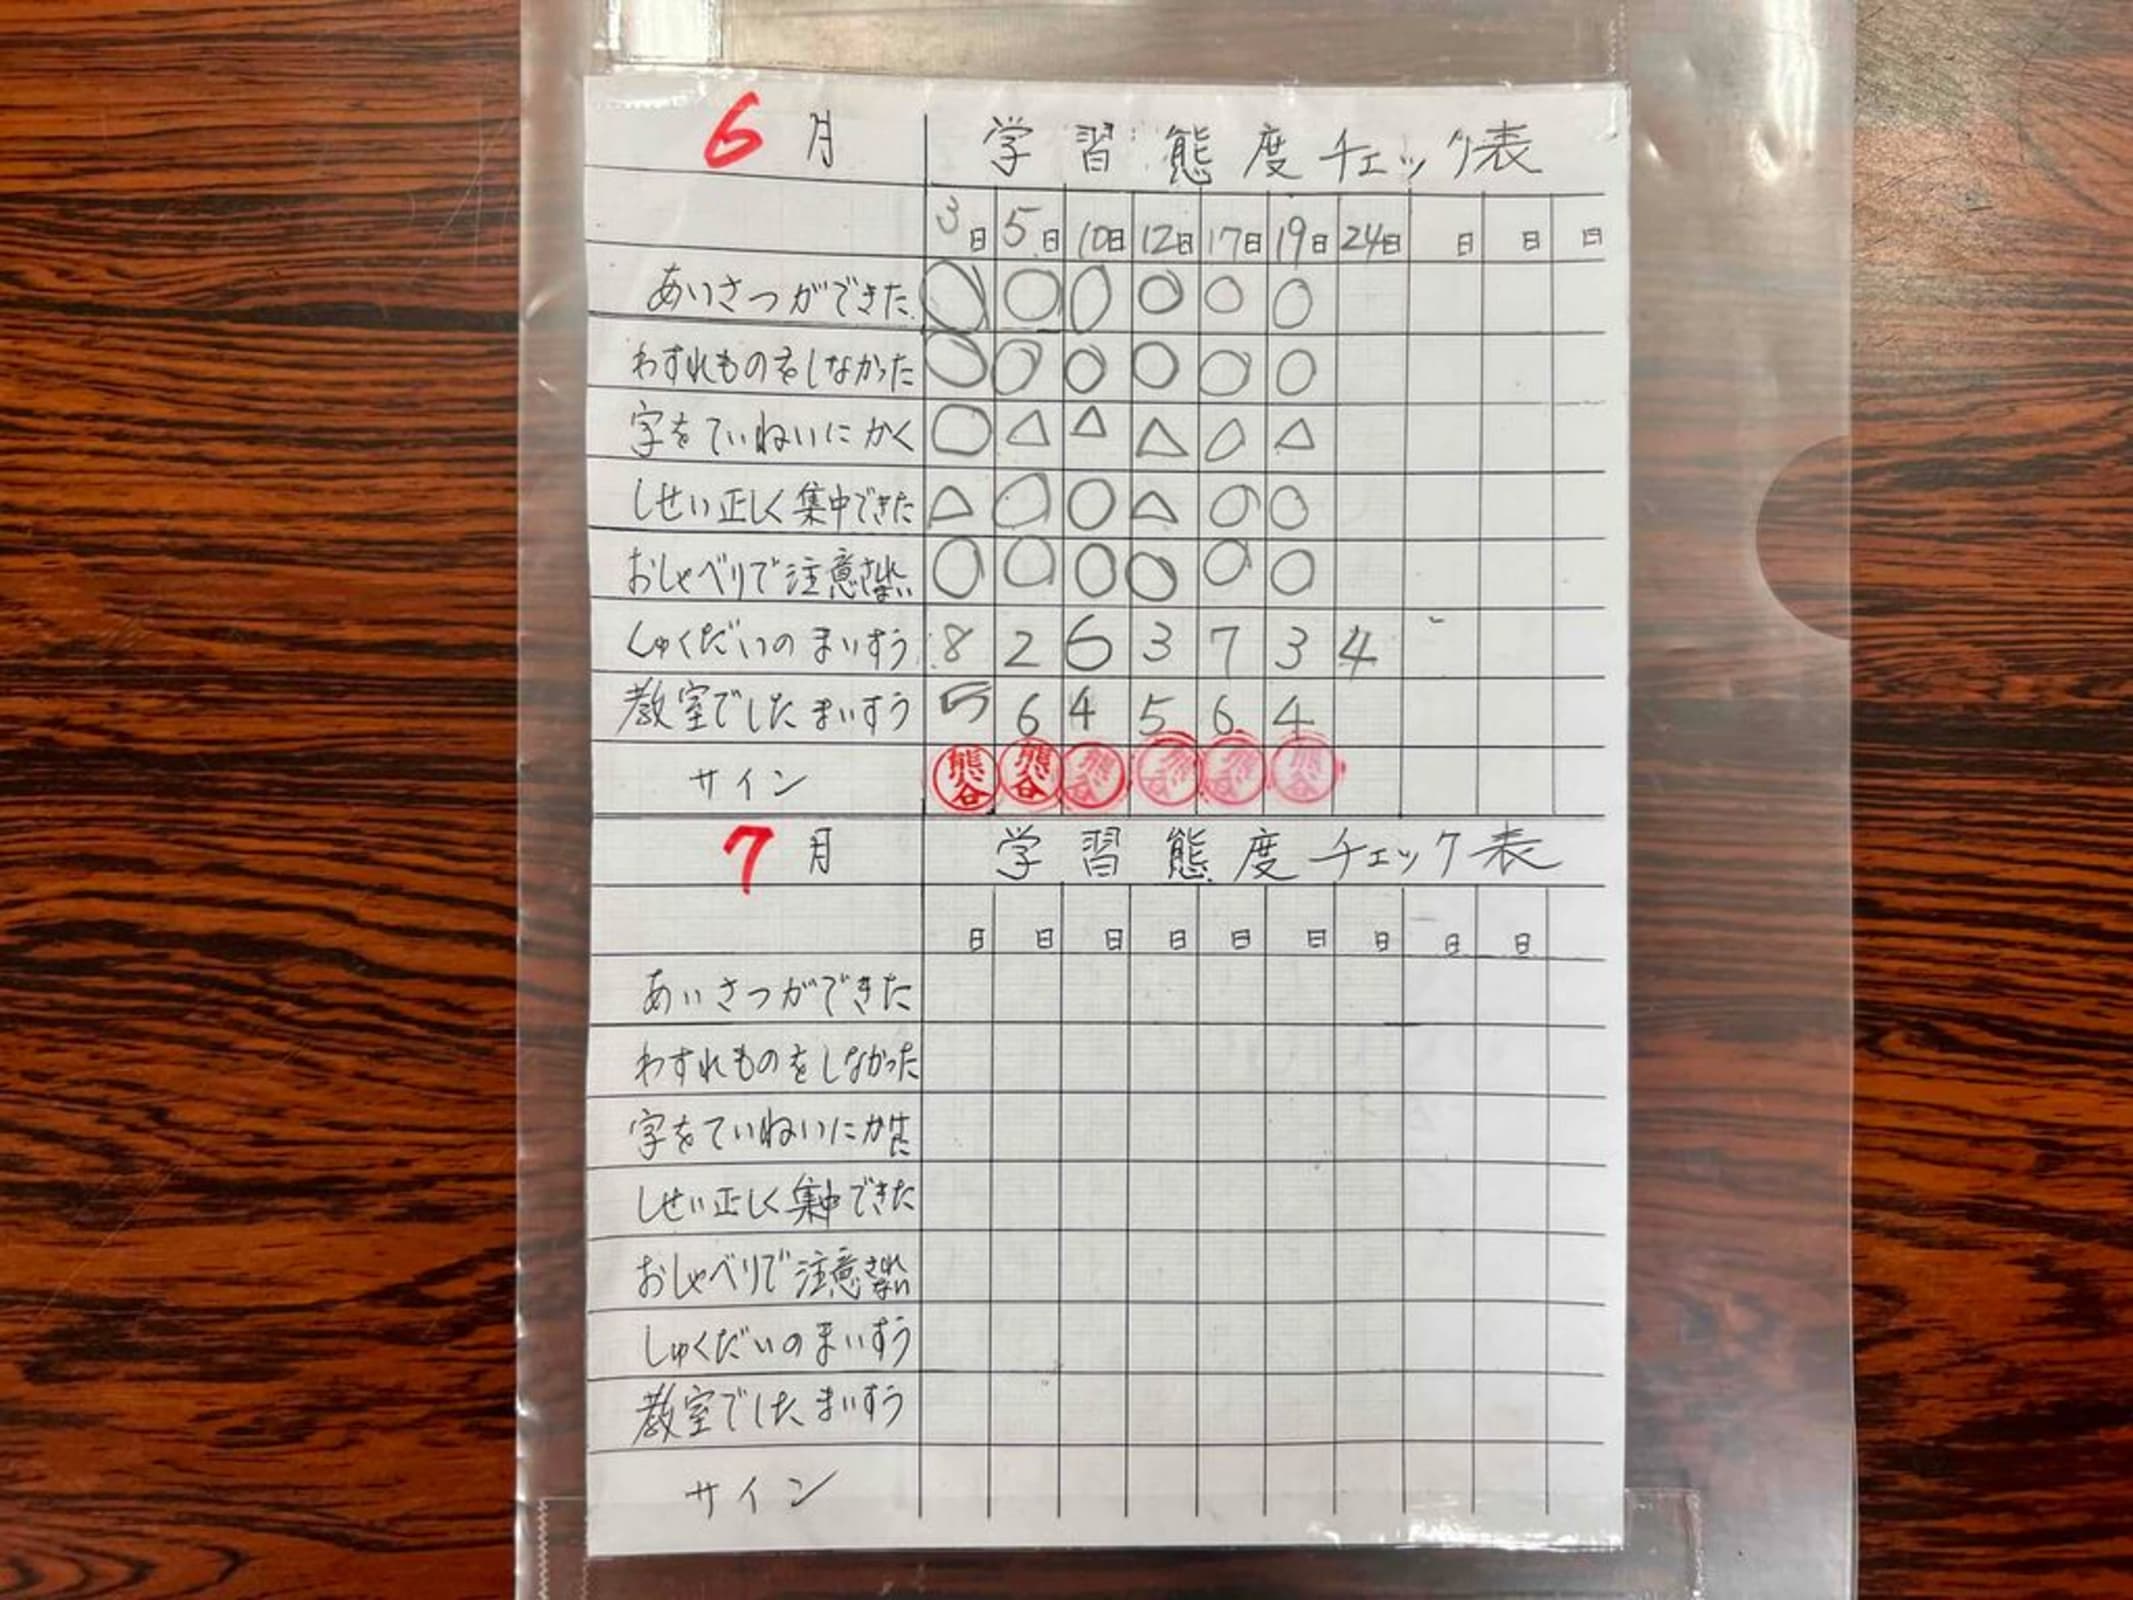 6 月 学習態度チェック表
3日 5日 10日 12日 17日 19日 24日 日 日 日
あいさつができた ○ ○ ○ ○ ○ ○
わすれものをしなかった ○ ○ ○ ○ ○ ○
字をていねいにかく ○ △ △ △ ○ △
しせい正しく集中できた △ ○ ○ △ ○ ○
おしゃべりで注意されない ○ ○ ○ ○ ○ ○
しゅくだいのまいすう 8 2 6 3 7 3 4
教室でしたまいすう 5 6 4 5 6 4
サイン 熊谷 熊谷 熊谷 熊谷 熊谷 熊谷
7 月 学習態度チェック表
日 日 日 日 日 日 日 日 日
あいさつができた
わすれものをしなかった
字をていねいにか
しせい正しく集中できた
おしゃべりで注意されない
しゅくだいのまいすう
教室でしたまいすう
サイン